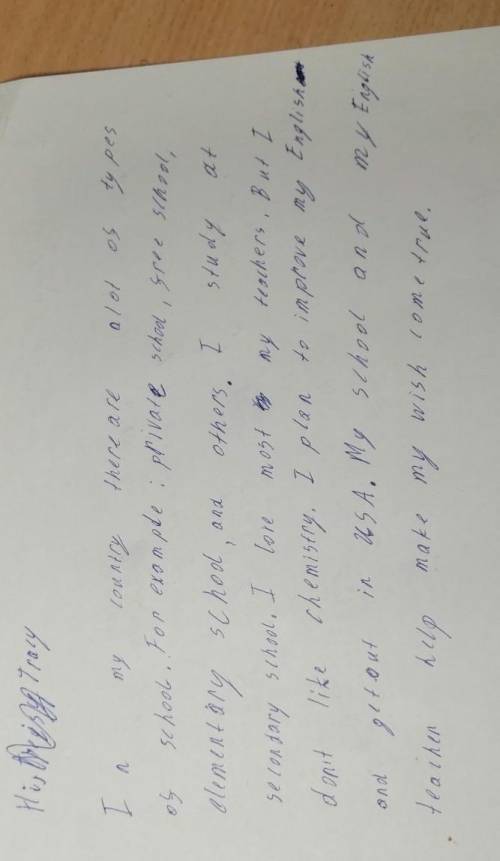 Hi Tracy
In my country there are alot os types
os school. For example: private school, sree school,
elementary school, and others. I study at
secontary school. I love most my teachers. But I
don't like chemistry. I plan to improve my English
and get out in USA. My school and my English
teacher help make my wish come true.